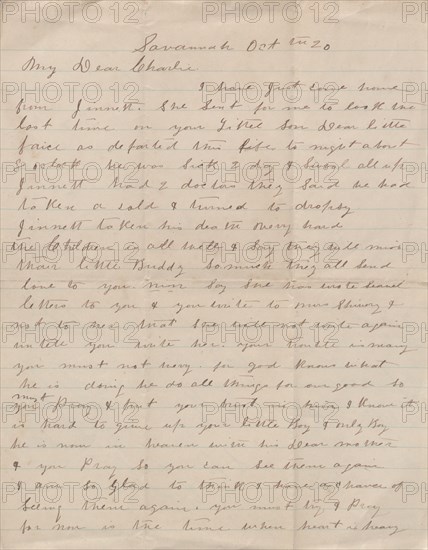 Savannah Oct th 20
My Dear Charlie
I have Just come home
from Jinnett. She Sent for me to look the
last time on your Littel Son Dear little
as departed this to night about
8 oclock he was Sick 2 day & Swool all up
Jinnett had 2 doctors they Said he had
taken a cold & turned to dropsy
Jinnett taken his death very hard
the Children is all well & Say they will miss
thair little Buddy So much they all Send
love to you Say She has wrote
letters to you & you write to &
not to her that She will not write again
untell you write her. Your trouble is many
you must not for god knows what
he is doing he do all things for our good So
you must Pray & put your trust in him I know it
is hard to give up your little Boy & only Boy
he is now in heaven with his Dear mother
& you Pray So you can See them again
I am So Glad to think I have a chance of
Seeing them again. you must try & Pray
for now is the time when heart is heavy
PHOTO12